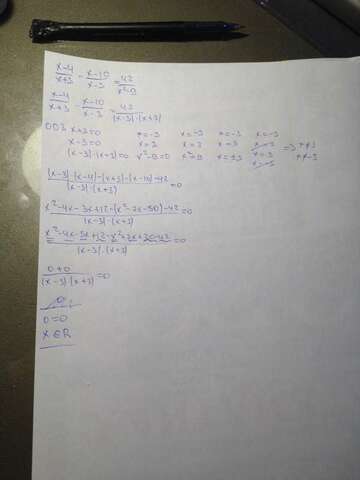 x-4/x+3 - x-10/x-3 = 42/x²-9
x-4/x+3 - x-10/x-3 = 42/(x-3)·(x+3)
ODZ x+3=0 x=-3 x=-3 x=-3 x=-3
x-3=0 x=3 x=3 x=3 x=-3
(x-3)·(x+3)=0 x²-9=0 x²=9 x=±3 x=3 => x≠3
x=-3 x≠-3
(x-3)·(x-4)-(x+3)·(x-10)-42/(x-3)·(x+3) =0
x²-4x-3x+12-(x²-7x-30)-42/(x-3)·(x+3) =0
x²-4x-3x+12-x²+7x+30-42/(x-3)·(x+3) =0
0+0/(x-3)·(x+3) =0
0
0=0
x∈R